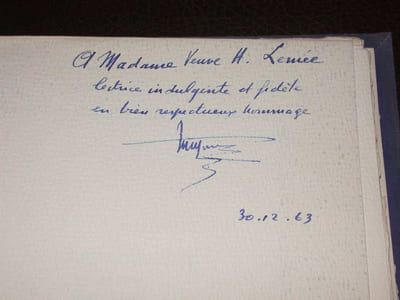 A Madame Veuve H. Lemée
lectrice indulgente et fidèle
en bien respectueux hommage
30.12.63